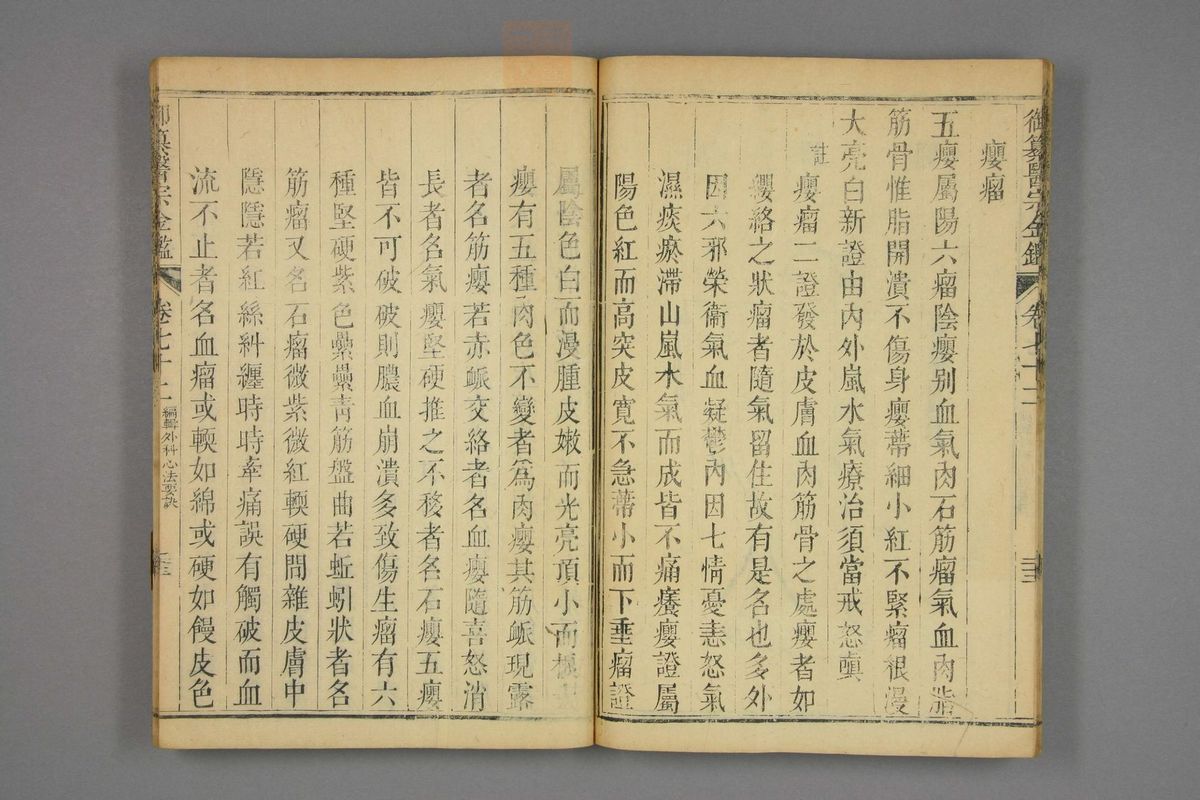 御纂醫宗金鑑
卷七十二
癭瘤
五癭屬陽六瘤陰癭别血氣肉石筋瘤氣血肉脂
筋骨惟脂開潰不傷身癭蒂細小紅不緊瘤根漫
大亮白新證由內外嵐水氣療治須當戒怒嗔
註
癭瘤二證發於皮膚血肉筋骨之處癭者如
纓絡之狀瘤者隨氣留住故有是名也多外
因六邪榮衞氣血凝鬱內因七情憂恚怒氣
濕痰瘀滯山嵐水氣而成皆不痛癢癭證屬
陽色紅而高突皮寛不急蒂小而下垂瘤證
屬陰色白而漫腫皮嫩而光亮頂小而根
癭有五種肉色不變者爲肉癭其筋䘑現露
者名筋癭若赤䘑交絡者名血癭隨喜怒消
長者名氣癭堅硬推之不移者名石癭五癭
皆不可破破則膿血崩潰多致傷生瘤有六
種堅硬紫色纍纍青筋盤曲若蚯蚓狀者名
筋瘤又名石瘤微紫微紅輭硬間雜皮膚中
隱隱若紅絲糾纏時時牽痛誤有觸破而血
流不止者名血瘤或輭如綿或硬如饅皮色
御纂醫宗金鑑
卷七十二
編輯外科心法要訣